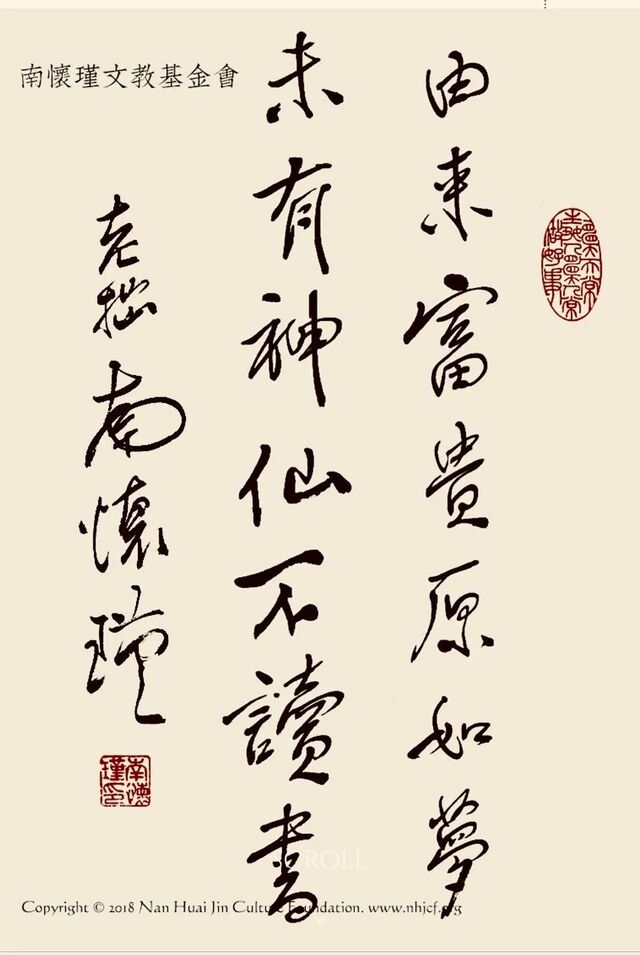 南懷瑾文教基金會
由来富貴原如夢
未有神仙不讀書
老拙南懷瑾
南懷瑾印
SCROLL
Copyright © 2018 Nan Huai Jin Culture Foundation. www.nhjcf.org